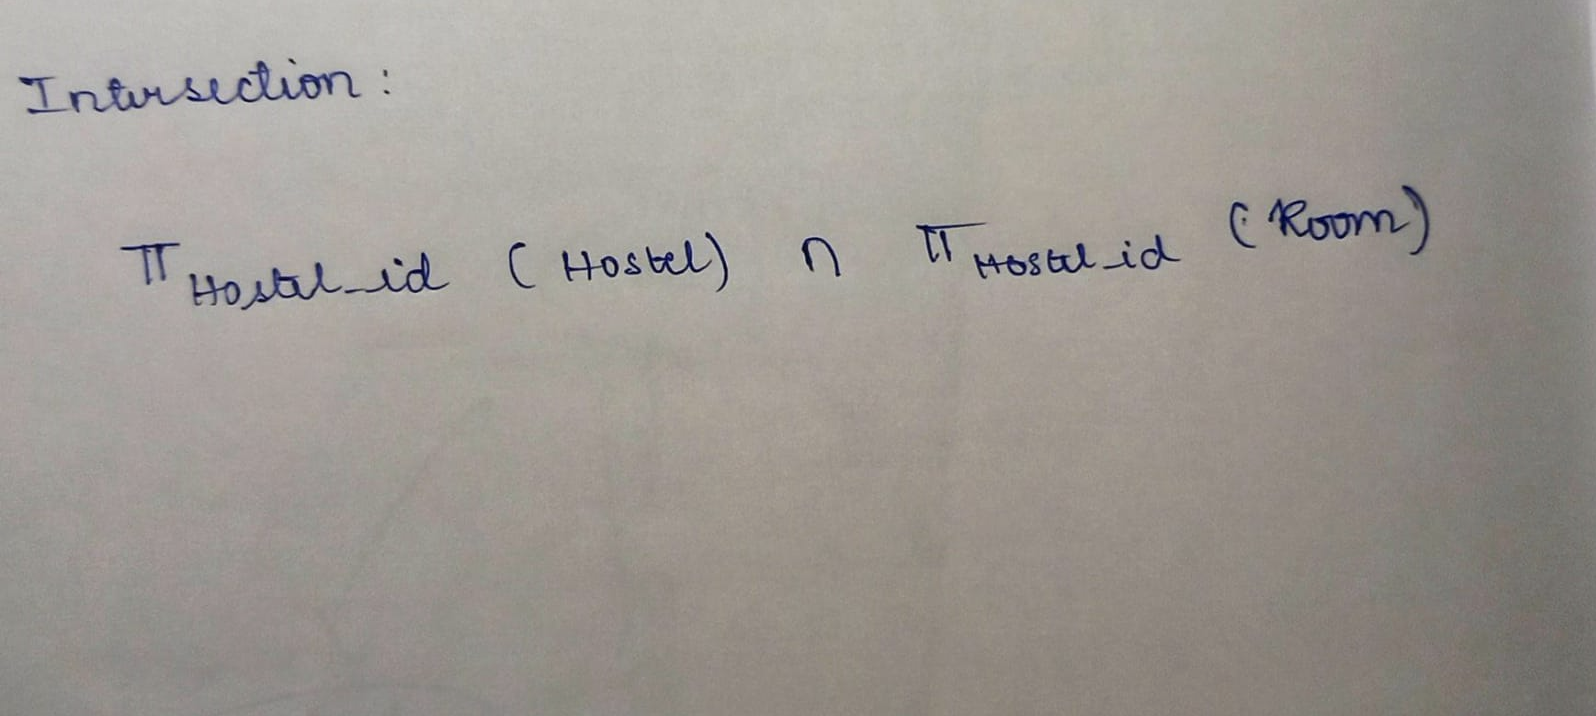 Intersection :
π Hostel_id (Hostel) ∩ π Hostel_id (Room)